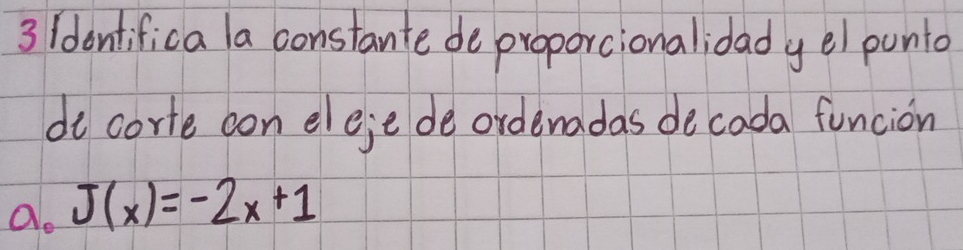 3 Identifica la constante de proporcionalidad y el punto
de corte con el eje de ordenadas de cada función
a. J(x)=-2x+1